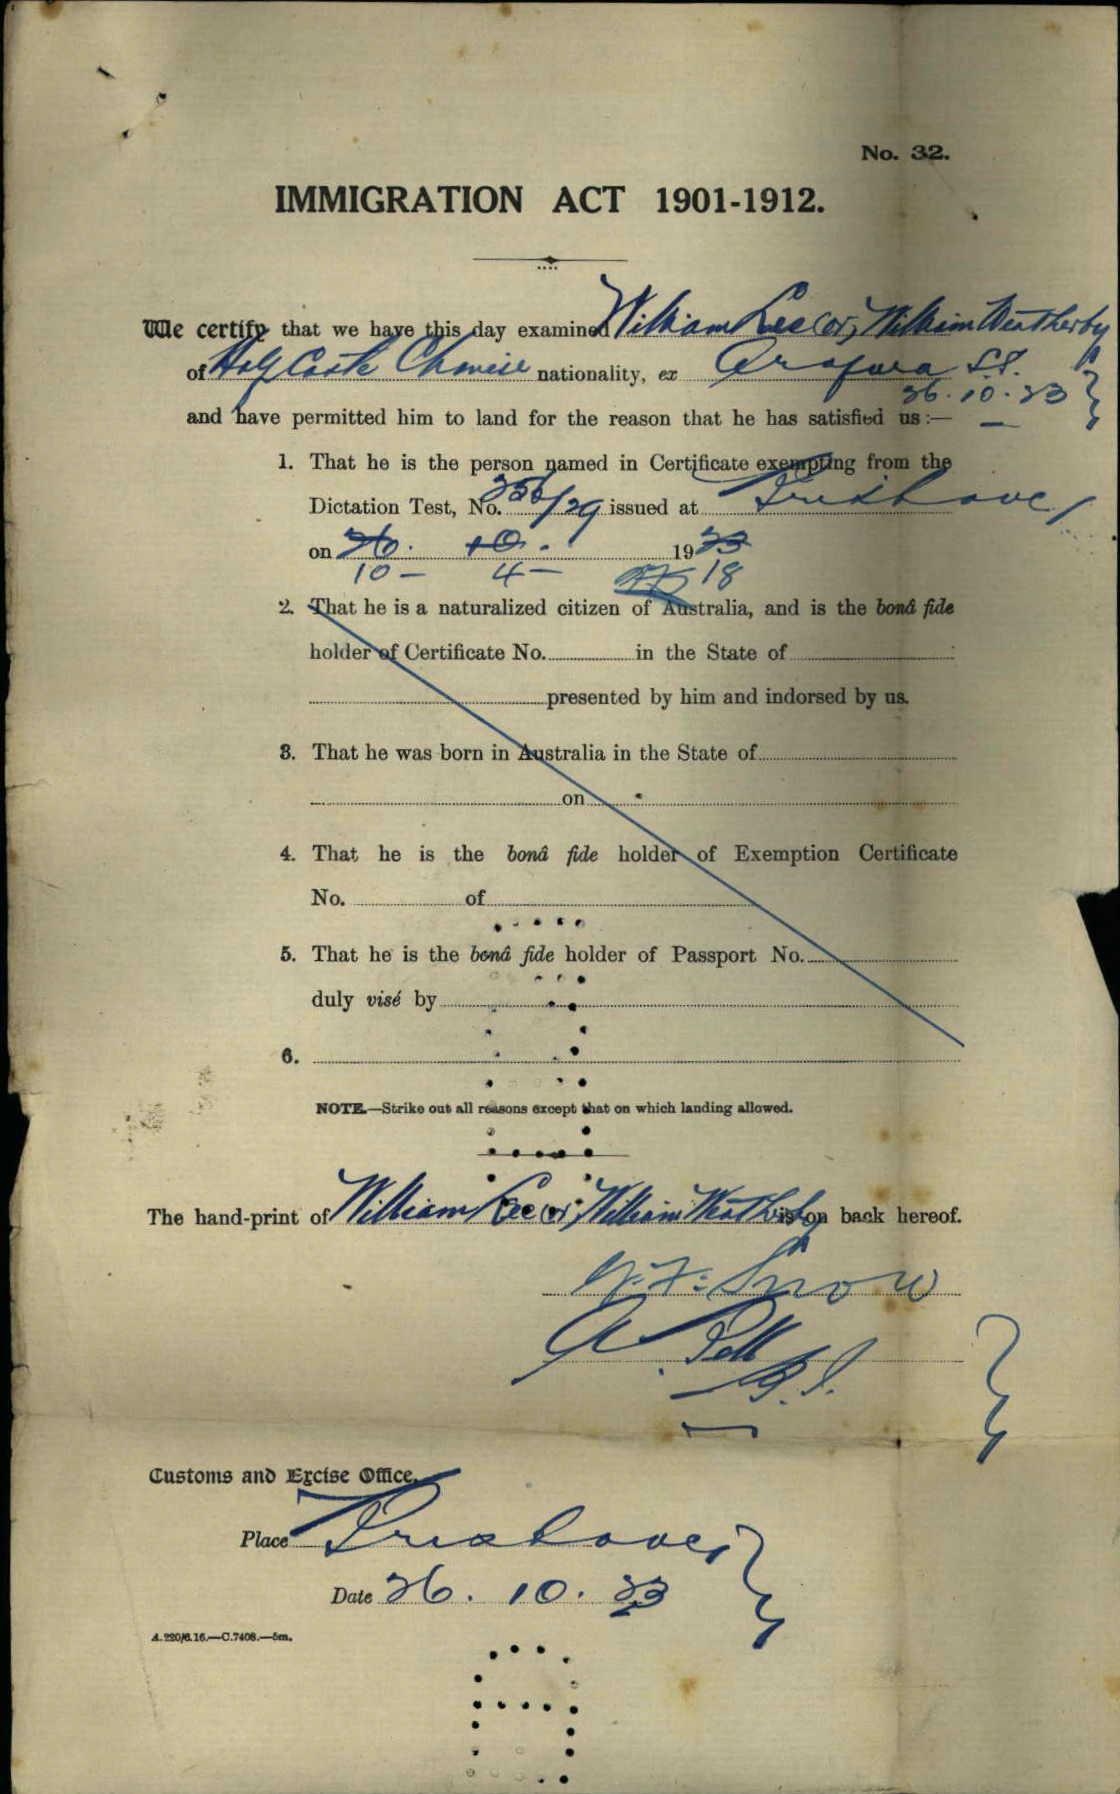 No. 32.
IMMIGRATION ACT 1901-1912.
We certify that we have this day examined William Lee (or) William Weatherby
of Half Caste Chinese nationality, ex Arafura S.S.
26.10.23
and have permitted him to land for the reason that he has satisfied us:—
1. That he is the person named in Certificate exempting from the
Dictation Test, No. 256/29 issued at Brisbane
on 26. 10. 1923
10 - 4 - 18
2. That he is a naturalized citizen of Australia, and is the bonâ fide
holder of Certificate No. in the State of
presented by him and indorsed by us.
3. That he was born in Australia in the State of
on
4. That he is the bonâ fide holder of Exemption Certificate
No. of
5. That he is the bonâ fide holder of Passport No.
duly visé by
6.
NOTE.—Strike out all reasons except that on which landing allowed.
The hand-print of William Lee (or) William Weatherby is on back hereof.
Snow
A. Pell
Customs and Excise Office.
Place Brisbane
Date 26. 10. 23
A.220/6.16.—C.7408.—5m.